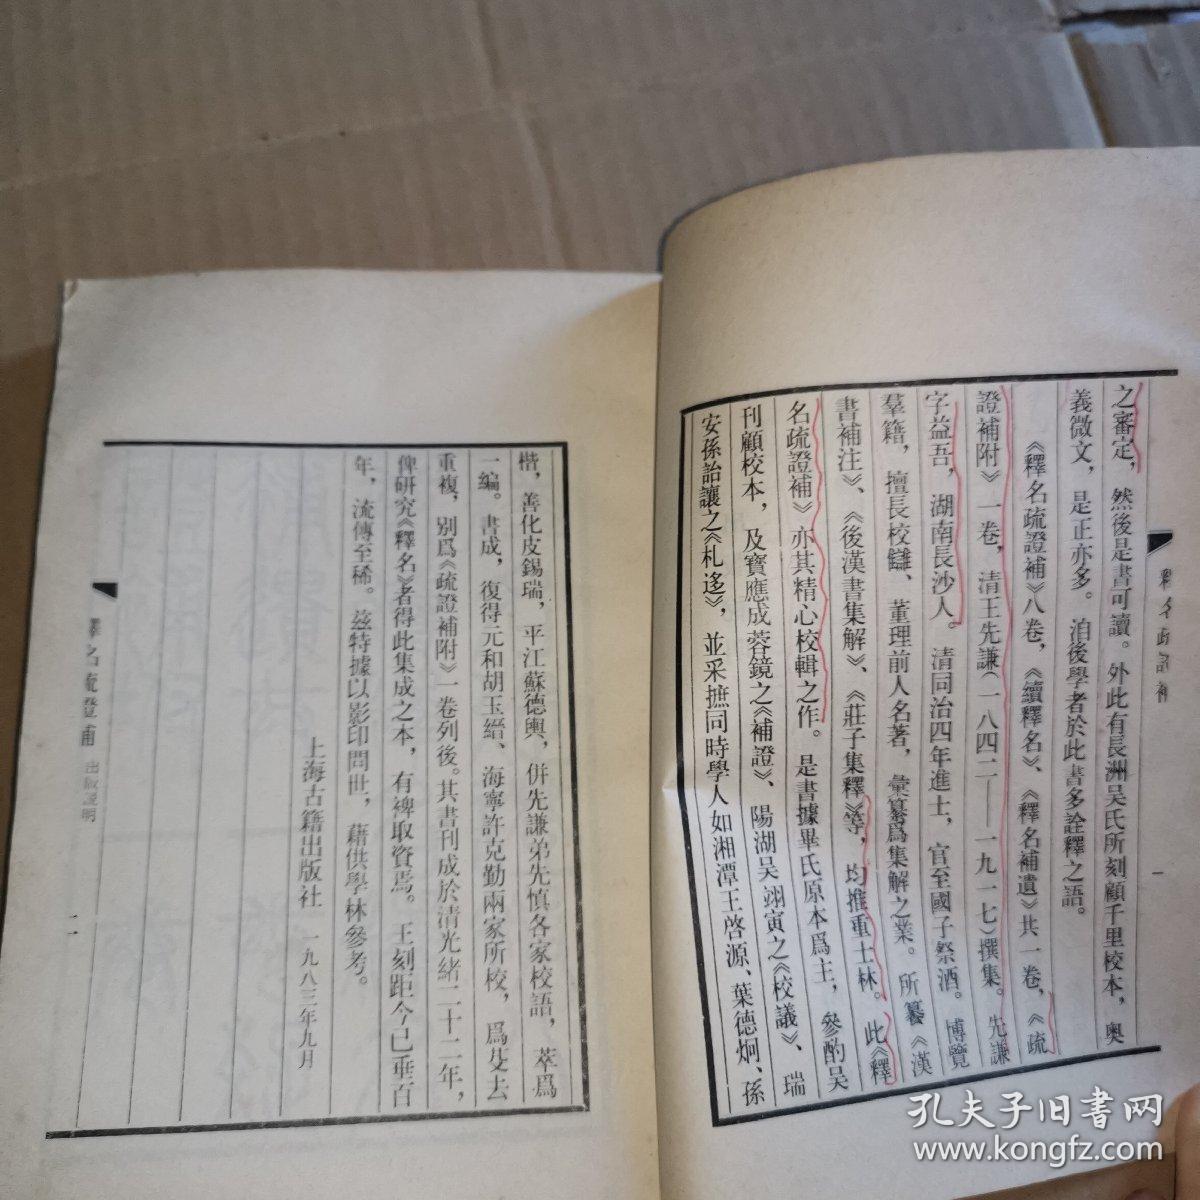 釋名疏證補
一
之審定，然後是書可讀。外此有長洲吳氏所刻顧千里校本，奧
義微文，是正亦多。洎後學者於此書多詮釋之語。
《釋名疏證補》八卷，《續釋名》、《釋名補遺》共一卷，《疏
證補附》一卷，清王先謙（一八四二——一九一七）撰集。先謙
字益吾，湖南長沙人。清同治四年進士，官至國子祭酒。博覽
羣籍，擅長校讎、董理前人名著，彙纂爲集解之業。所纂《漢
書補注》、《後漢書集解》、《莊子集釋》等，均推重士林。此《釋
名疏證補》亦其精心校輯之作。是書據畢氏原本爲主，參酌吳
刊顧校本，及寶應成蓉鏡之《補證》、陽湖吳翊寅之《校議》、瑞
安孫詒讓之《札迻》，並采摭同時學人如湘潭王啓源、葉德炯、孫
楷，善化皮錫瑞，平江蘇德輿，併先謙弟先慎各家校語，萃爲
一編。書成，復得元和胡玉縉、海寧許克勤兩家所校，爲芟去
重複，別爲《疏證補附》一卷列後。其書刊成於清光緒二十二年，
俾研究《釋名》者得此集成之本，有裨取資焉。王刻距今已垂百
年，流傳至稀。茲特據以影印問世，藉供學林參考。
上海古籍出版社 一九八三年九月
釋名疏證補 出版說明
二
孔夫子旧书网
www.kongfz.com